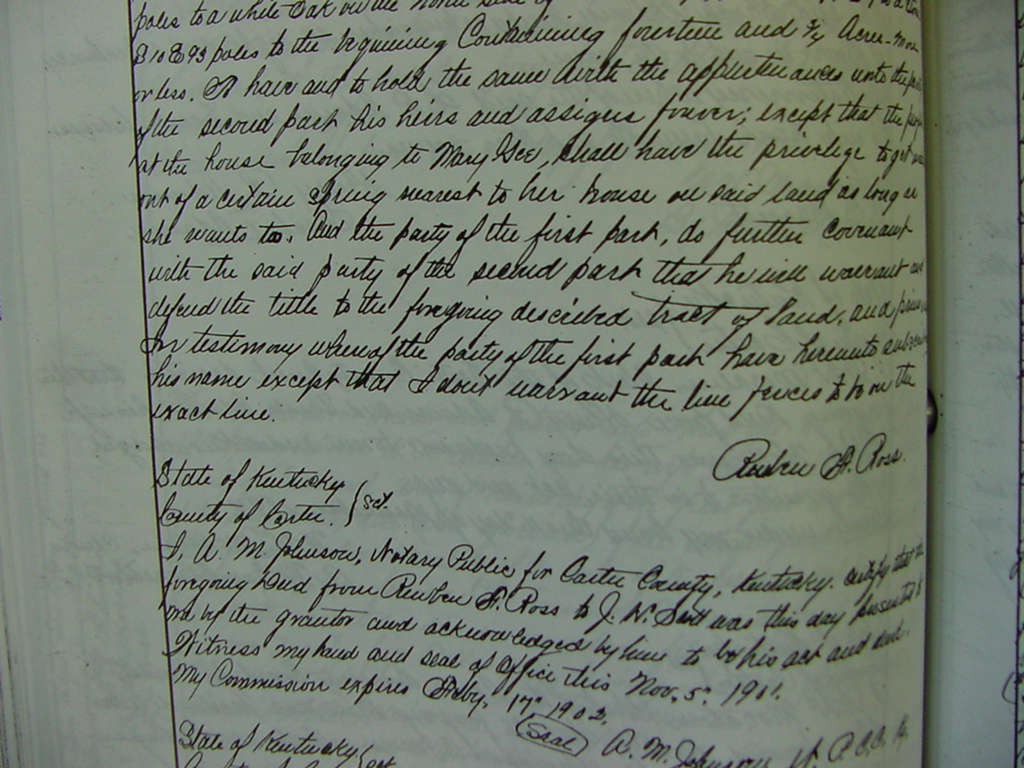 poles to a white Oak on the North side of
S 10 E 93 poles to the beginning Containing fourteen and 3/4 Acres more
or less. To have and to hold the same with the appurtenances unto the
of the second part his heirs and assigns forever; except that the
at the house belonging to Mary Gee, shall have the privilege to get
out of a certain Spring nearest to her house on said land as long as
she wants to. And the party of the first part, do further covenant
with the said party of the second part that he will warrant and
defend the title to the foregoing described tract of land, and
In testimony whereof the party of the first part have hereunto
his name except that I dont warrant the line fences to be on the
exact line.
Reuben H. Ross.
State of Kentucky
County of Carter. } Sct.
I, A. M Johnson, Notary Public for Carter County, Kentucky. certify that the
foregoing Deed from Reuben H. Ross to J. W. was this day presented to
me by the grantor and acknowledged by him to be his act and deed.
Witness my hand and seal of office this Nov. 5" 1901.
My Commission expires Feby. 17" 1902.
(Seal) A. M. Johnson
State of Kentucky